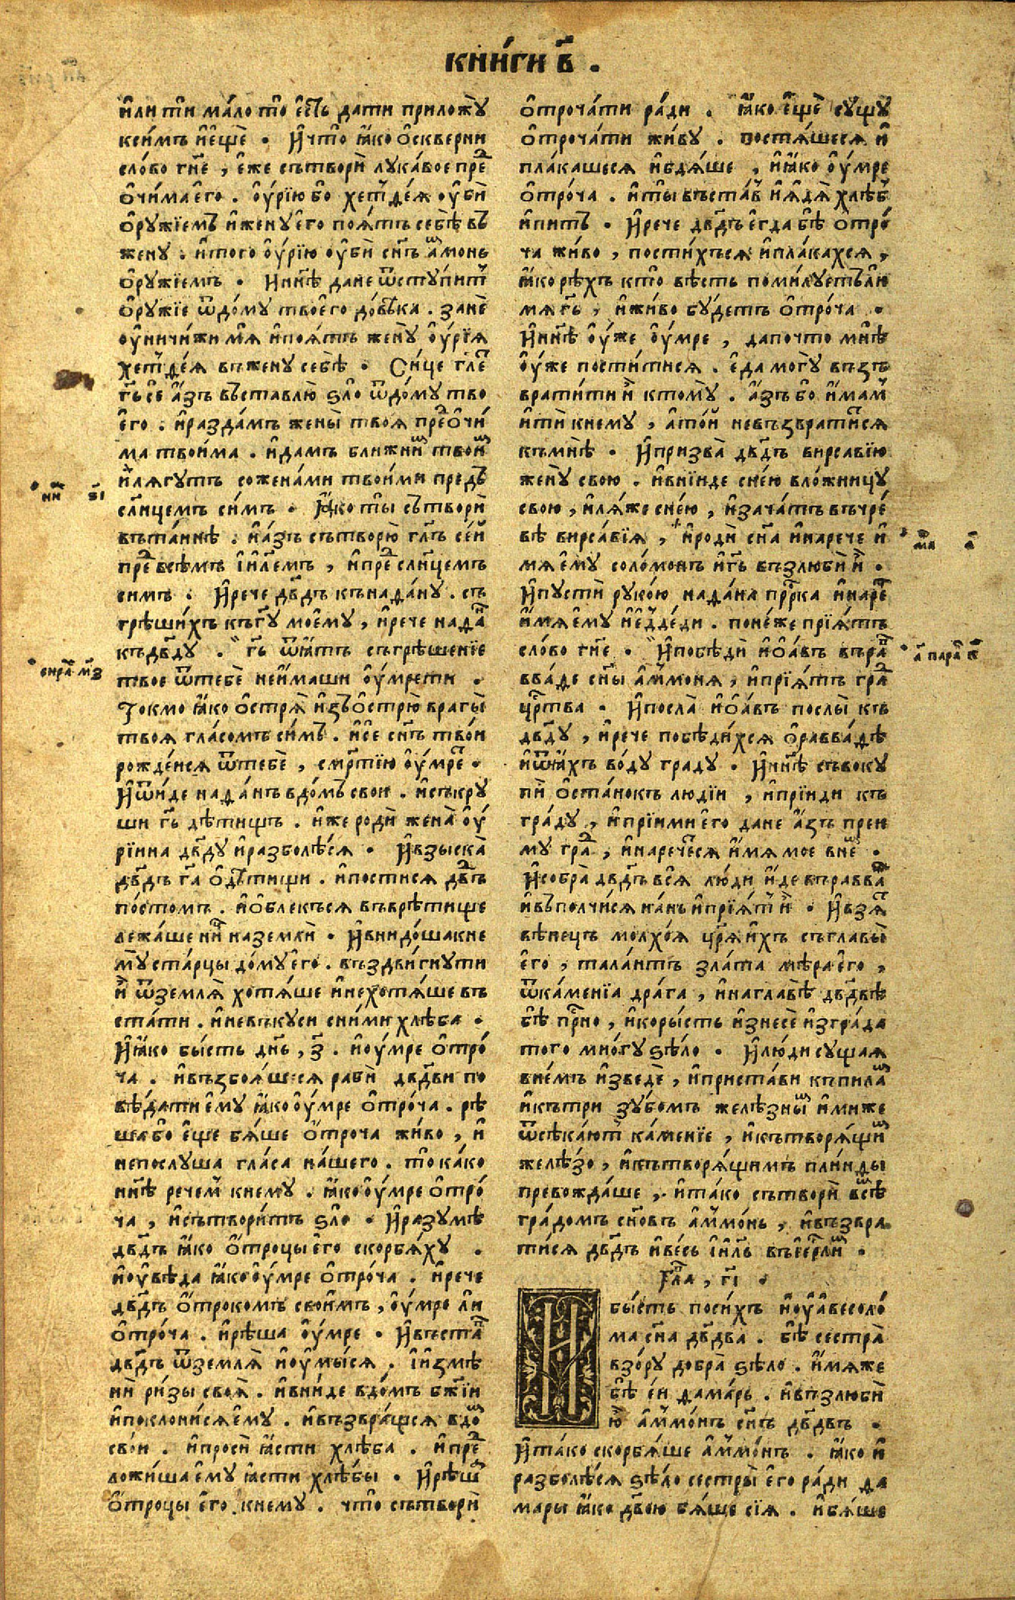 кни́ги в҃ .
и҆ли ти ма́ло то є҆сть дати приложꙋ
ксимъ и҆є҆щѐ . И҆что̀ ꙗ҆́ко ѡ҆скверни
сло́во гн҃е , є҆́же сътворѝ лꙋка́вое прⷣе
о҆чи́ма є҆го . о҆у҆рі́ю бо хетⷮде́ѧ о҆у҆бѝ
ѻ҆рꙋжїемъ и҆женꙋ є҆го поѧ́тъ себѣ̀ въ
женꙋ . и҆того о҆у҆рі́ю о҆у҆бѝ сн҃ъ а҆монь
ѻ҆рꙋжїемъ . Ннн҃ѣ дане ѿстꙋпитⷮ
ѻ҆рꙋжїе ѿдо́мꙋ твоего до́вѣка . занѐ
о҆у҆ничижи мѧ̀ и҆поѧ́тъ женꙋ̀ о҆у҆рі́ѧ
хетⷮде́ѧ въженꙋ себѣ̀ . Си́це гл҃еⷮ
гь҃ се а҆́зъ въставлю ѕло ѿдо́мꙋ тво
є҆го . и҆разда́мъ жены̀ твоѧ̀ прⷣеѻ҆чи́
ма твои́ма . и҆дамъ ближниⷨ твоиⷨ
и҆лѧ́гꙋтъ сожена́ми твои́ми предъ
сл҃нцемъ си́мъ . Ꙗ҆́ко ты̀ сътворѝ
въта́инѣ . и҆а҆́зъ сътворю̀ гл҃ъ се́й
прⷣе всѣ́мъ і҆и҃лемъ , и҆прⷣе сл҃нцемъ
симъ . И҆рече дв҃дъ къна дану . съ
грѣши́хъ къгꙋ҃ мое́мꙋ , и҆рече на даⷩ
къдв҃дꙋ . гь҃ ѿꙗ҆́тъ съгрѣше́нїе
твое ѿтебѐ неи́маши о҆у҆мрети .
Токмо ꙗ҆́ко ѻ҆стрѧ̀ и҆зъѻ҆стрю̀ врагы̀
твоѧ гла́сомъ си́мъ . и҆се сн҃ъ твои́
рожде́исѧ ѿтебѐ , сме́ртїю о҆у҆мреⷮ .
И҆ѿи́де на данъ вдо́мъ сво́и . и҆съкрꙋ
ши гь҃ дѣтищъ . и҆же родѝ жена̀ о҆у҆
рі́ина дв҃дꙋ и҆разболѣ́сѧ . И҆взыска̀
дв҃дъ гⷭ҇а ѻ҆дѣтищи . и҆постисѧ дв҃дъ
по́стомъ . и҆ѻ҆блекъсѧ въврѣтище
лежа́ше нⷩи на землѝ . И҆внидо́ша кне
мꙋ̀ ста́рцы до́мꙋ є҆го . въздви́гнꙋти
и҆̀ ѿземлѧ̀ хотѧ́ще и҆нехотѧ́ше въ
ста́ти . и҆невъкꙋси сни́ми хлѣ́ба .
И҆ꙗ҆́ко бы́сть дн҃ь , з҃ . и҆о҆у҆мре ѻ҆тро́
ча . и҆възбоѧ́шесѧ рабѝ дв҃дви по
вѣ́дати є҆мꙋ ꙗ҆́ко о҆у҆мре ѻ҆троча . рѣ
ша бо є҆ще бѧ́ше ѻ҆́троча жи́во , и҆
непослꙋша гла́са на́шего . то ка́ко
нн҃ѣ рече́мⷨ кнемꙋ . ꙗ҆́ко о҆у҆мре ѻ҆тро́
ча , и҆сътвори́тъ ѕло . И҆разꙋмѣ̀
дв҃дъ ꙗ҆́ко ѻ҆́троцы є҆го скорбѧ́хꙋ .
и҆о҆у҆вѣда ꙗ҆́ко о҆у҆мре ѻ҆троча . и҆рече
дв҃дъ ѻ҆́трокомъ свои́мъ , о҆у҆мре ли
ѻ҆троча . и҆рѣша о҆у҆мре . И҆въстаⷡ
дв҃дъ ѿземлѧ̀ и҆о҆у҆мы́сѧ . і҆и҆змѣ
нѝ ри́зы своѧ̀ . и҆вни́де вдо́мъ бж҃їи
и҆поклони́сѧ є҆мꙋ . и҆възвра́щсѧ вдоⷨ
сво́и . и҆просѝ ꙗ҆́сти хлѣ́ба . и҆прⷣе
ложи́ша є҆мꙋ ꙗ҆́сти хлѣ́бы . И҆рѣшⷶ
ѻ҆троцы є҆го кнемꙋ . что̀ сътворѝ
ѻ҆троча́ти ра́ди . ꙗ҆́ко є҆щѐ сꙋщꙋ
ѻ҆троча́ти жи́вꙋ . постѧ́шесѧ и҆
пла́кашесѧ и҆бдѧ́ше , и҆ꙗ҆́ко о҆у҆мре
ѻ҆троча . и҆ты̀ въста́вⷡ и҆ꙗ҆дѧ̀ хлѣбⷠ
и҆питъ . И҆рече дв҃дъ є҆гда бѣ̀ ѻ҆тро́
ча живо , пости́хъсѧ и҆пла́кахсѧ ,
ꙗ҆́ко рѣ́хъ кто̀ вѣсть помилꙋетъли
мѧ гь҃ , и҆живо бꙋ́детъ ѻ҆троча .
И҆нн҃ѣ о҆у҆же о҆у҆мре , дапочто мнѣ̀
о҆у҆же пости́тисѧ . є҆да могꙋ възъ
врати́ти и҆̀ ктомꙋ̀ . а҆́зъ бо и҆́мамⷨ
и҆тѝ кнемꙋ , а҆то́й невъзврати́тсѧ
къмнѣ̀ . И҆призва̀ дв҃дъ вирсаві́ю
женꙋ̀ свою . и҆вни́нде сне́ю вло́жницꙋ
свою , и҆лѧ́же сне́ю , и҆зача́тъ въчре́
вѣ вирсаві́ѧ , и҆родѝ сн҃а и҆нарече и҆́
мѧ є҆мꙋ соло́монъ и҆гь҃ възлюбѝ и҆̀ .
И҆пꙋстѝ рꙋко́ю на да́на прⷪ҇рка и҆нареⷱ
и҆́мѧ є҆мꙋ и҆є҆дде́ди . поне́же прїѧ́тъ
сло́во гн҃е . И҆побѣдѝ и҆ѻ҆а́въ въраⷡ
вва́де сн҃ы а҆ммо́нѧ , и҆прїѧ́тъ граⷣ
црⷭ҇тва . И҆посла̀ и҆ѻ҆а́въ послы̀ къ
дв҃дꙋ , и҆рече побѣди́хсѧ ѻ҆равва́дѣ
и҆ѿꙗ҆́хъ во́дꙋ градꙋ . И҆нн҃ѣ съвокꙋ
пѝ ѻ҆ста́нокъ лю́дїи , и҆прїиди къ
гра́дꙋ , и҆прїими є҆го дане а҆́зъ преи
мꙋ граⷣ , и҆нарече́тсѧ и҆́мѧ мое внеⷨ .
И҆собра̀ дв҃дъ всѧ̀ лю́ди и҆и҆де въравваⷳ
и҆въполчи́сѧ на нь и҆прїѧ́тⷮ и҆̀ . И҆взѧⷮ
вѣне́цъ молхо́ѧ црѧ҃ и҆хъ съглавы̀
є҆го , тала́нтъ злата мѣ́ра є҆го ,
ѿка́менїа дра́га , и҆наглавѣ̀ дв҃двѣ
бѣ прⷭ҇но , и҆коры́сть и҆знесѐ и҆згра́да
того мно́гꙋ ѕѣло . И҆лю́ди сꙋщаѧ
вне́мъ и҆зведѐ , и҆приста́ви къпилаⷨ
и҆кътри зꙋбомъ желѣ́зныⷨ и҆ми́же
ѿсѣка́ютⷮ ка́менїе , и҆кътворѧ́щиⷨ
желѣ́зо , и҆кътворѧ́щимъ пли́нды
превожда́ше , и҆та́ко сътворѝ всⷨѣ
гра́домъ сн҃овъ а҆ммо́нь , и҆възвра
ти́сѧ дв҃дъ и҆весь і҆и҃ль въі҆є҆рⷭ҇лиⷨ .
Гла҃ , гі҃ .
И бы́сть поси́хъ и҆оу҆аве́соло́
ма сн҃а дв҃два . бѣ̀ сестра̀
взо́рꙋ добра̀ ѕѣло . и҆́мѧже
бѣ̀ є҆и́ дама́рь . и҆възлюбѝ
ю҆̀ а҆ммо́нъ сн҃ъ дв҃двъ .
И҆та́ко скорбѧ́ше а҆ммо́нъ . ꙗ҆́ко и҆
разболѣ́сѧ ѕѣло сестры̀ є҆го ра́ди да
мары ꙗ҆́ко дв҃ою бѧ́ше сїѧ̀ . и҆бѧ́ше